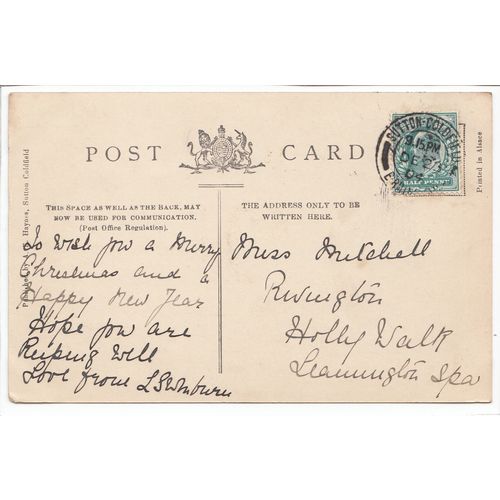 POST CARD
THIS SPACE AS WELL AS THE BACK, MAY
NOW BE USED FOR COMMUNICATION.
(Post Office Regulation).
THE ADDRESS ONLY TO BE
WRITTEN HERE.
To Wish you a Merry
Christmas and a
Happy New Year
Hope you are
Keeping Well
Love from
Miss Mitchell
Rivington
Holly Walk
Leamington Spa
SUTTON-COLDFIELD
9.15PM
DE
04
HALF PENNY
Printed in Alsace
Haynes, Sutton Coldfield